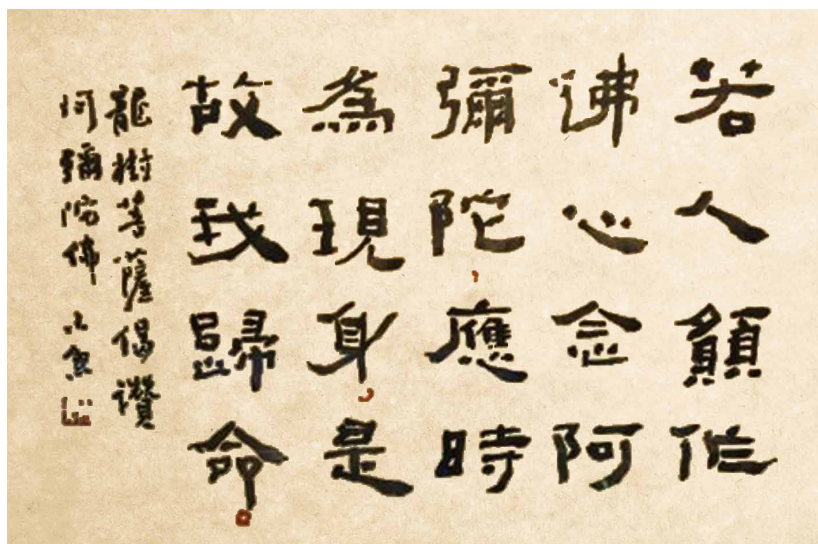 若人願作
佛心念阿
彌陀應時
為現身是
故我歸命
龍樹菩薩偈讚
阿彌陀佛 小魚